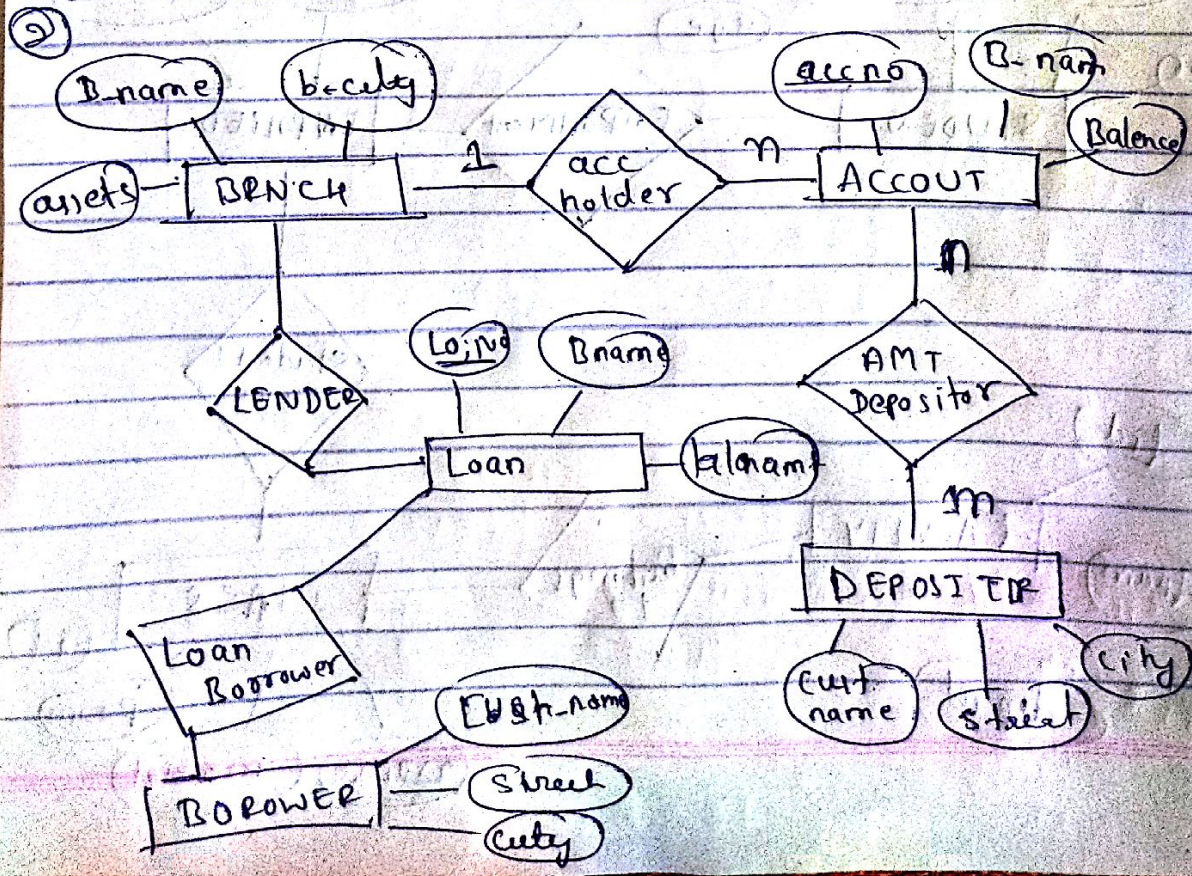 2
B_name
b-city
accno
B-nam
Balence
assets
BRNCH
1
acc
holder
n
ACCOUT
n
LENDER
Lo;No
Bname
AMT
Depositor
Loan
m
DEPOSITER
Loan
Boorower
cust
name
street
city
Cust-name
BOROWER
Street
city